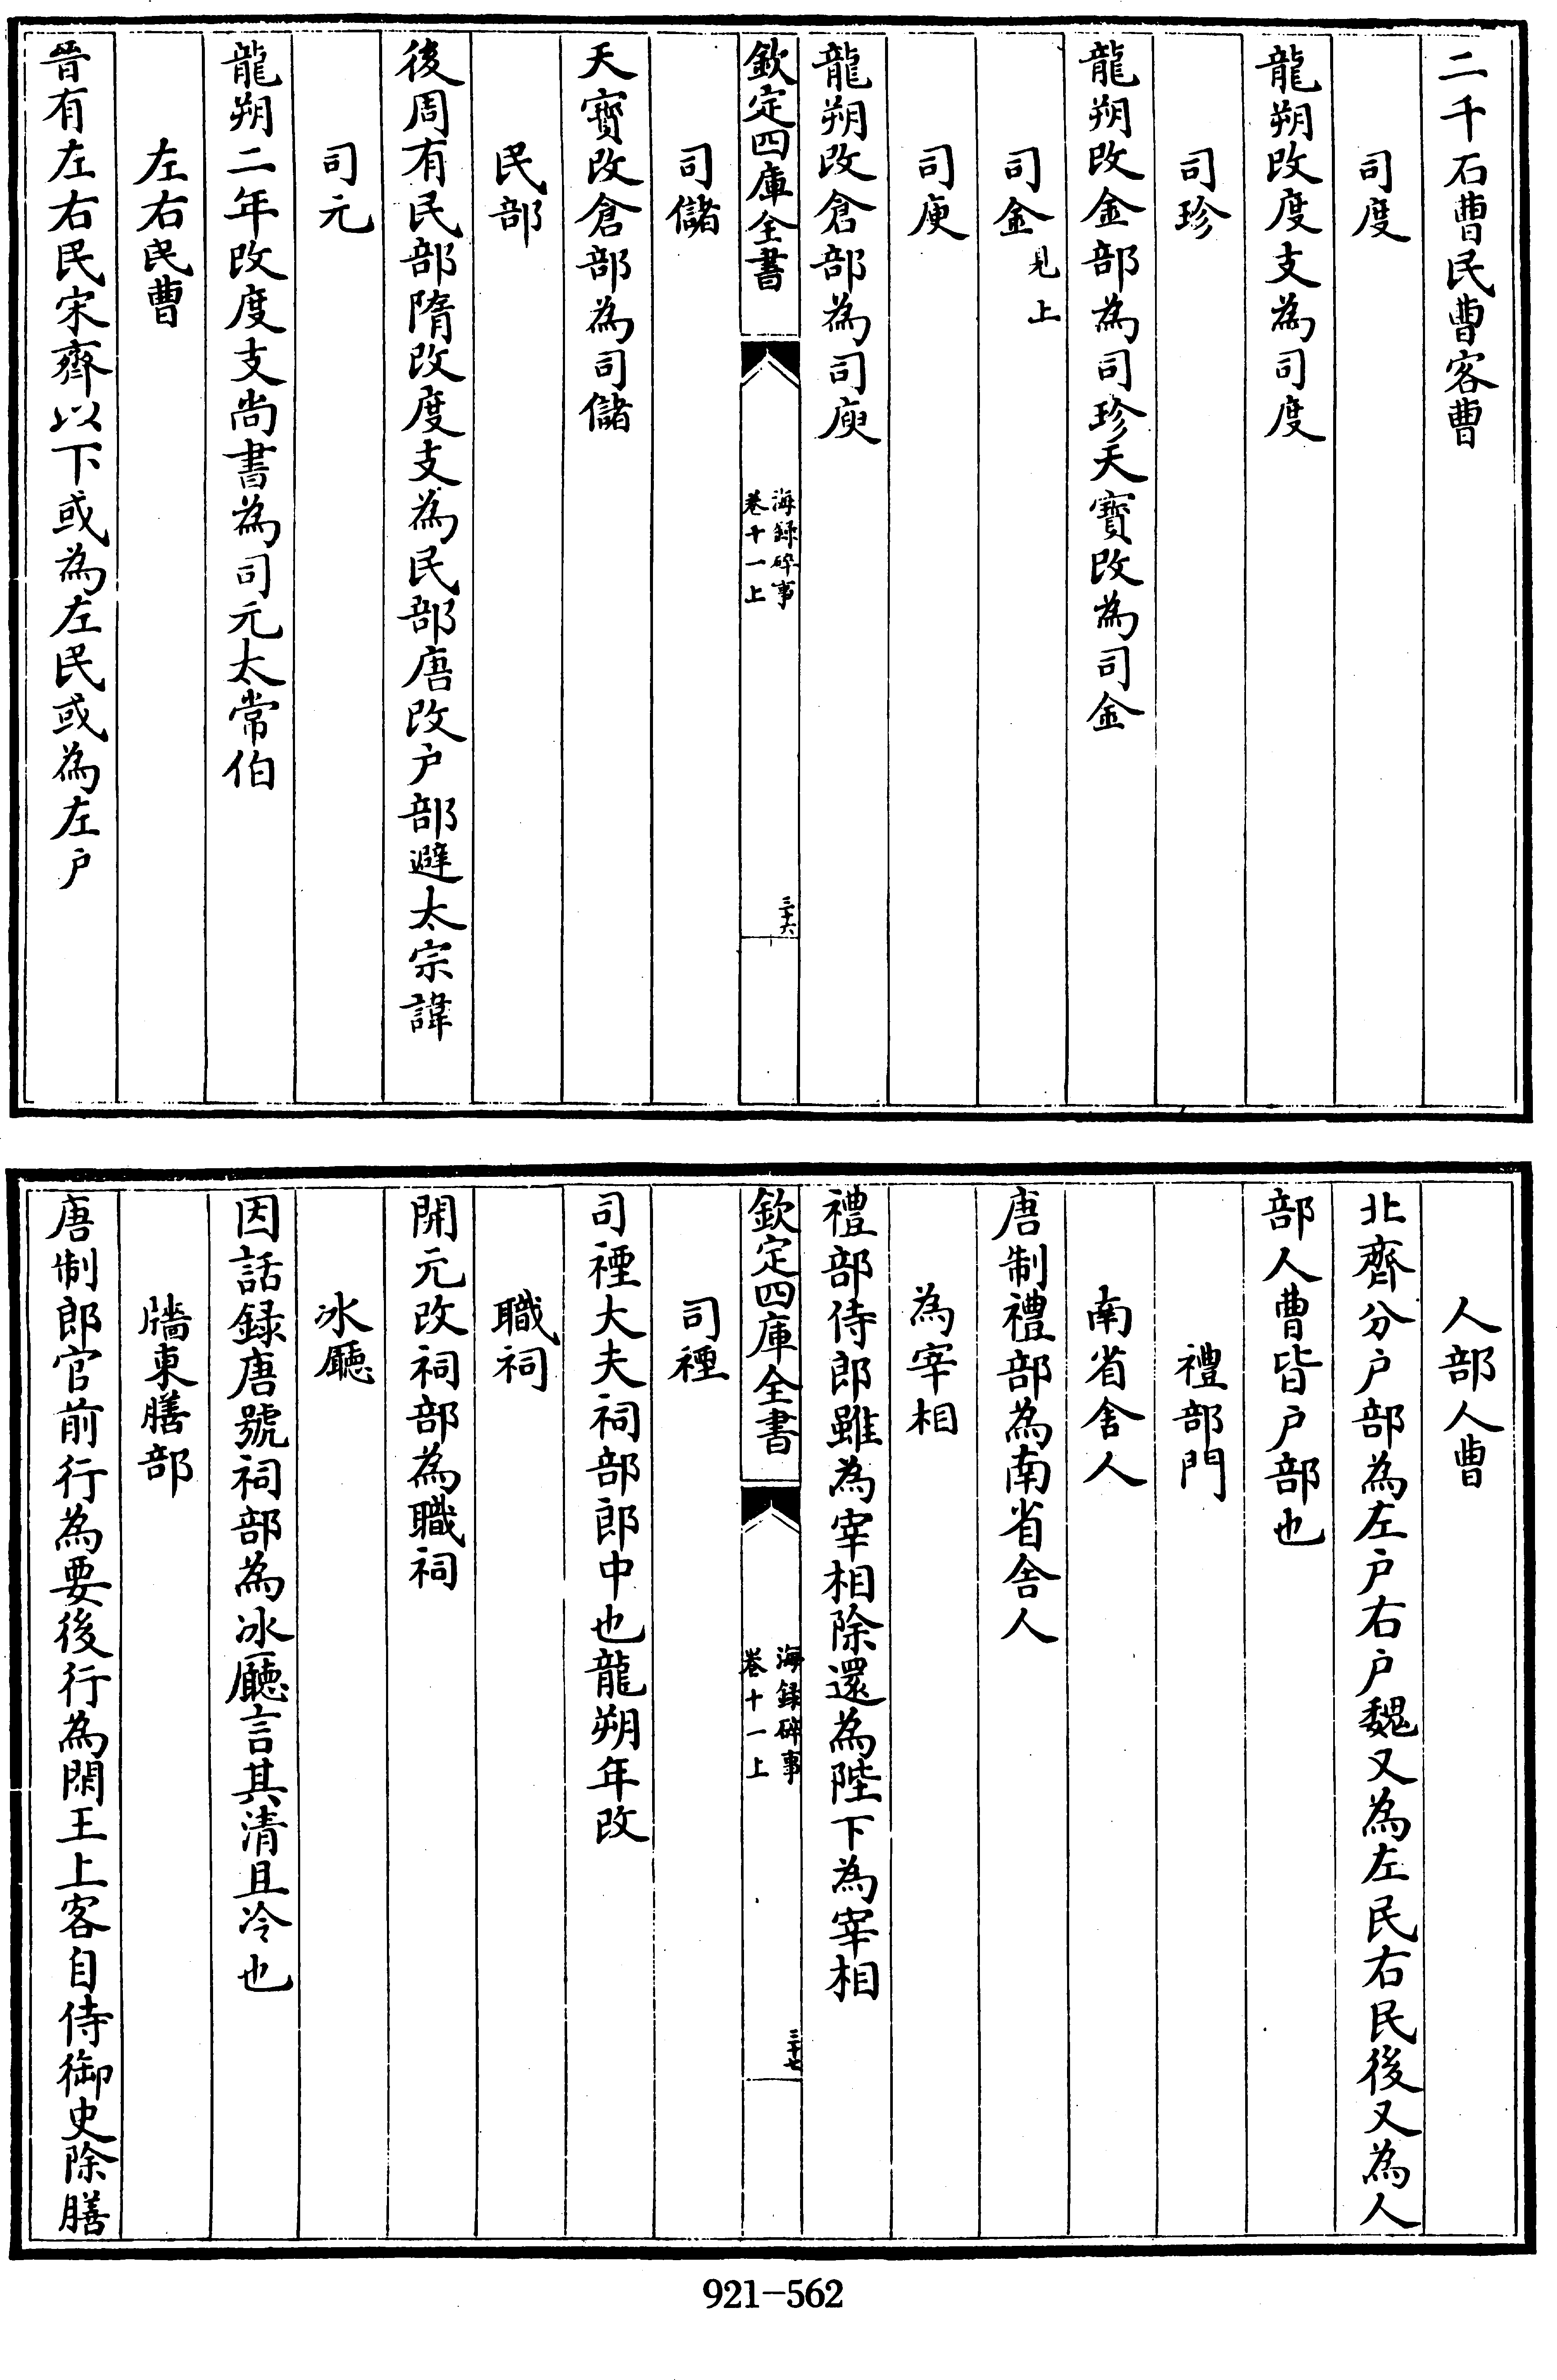 二千石曹民曹客曹
司度
龍朔改度支為司度
司珍
龍朔改金部為司珍天寳改為司金
司金見上
司庾
龍朔改倉部為司庾
欽定四庫全書
海録碎事
卷十一上
三十六
司儲
天寳改倉部為司儲
民部
後周有民部隋改度支為民部唐改户部避太宗諱
司元
龍朔二年改度支尚書為司元太常伯
左右民曹
晉有左右民宋齊以下或為左民或為左户
人部人曹
北齊分户部為左户右户魏又為左民右民後又為人
部人曹皆户部也
禮部門
南省舍人
唐制禮部為南省舍人
為宰相
禮部侍郎雖為宰相除還為陛下為宰相
欽定四庫全書
海録碎事
卷十一上
三十七
司禋
司禋大夫祠部郎中也龍朔年改
職祠
開元改祠部為職祠
冰廳
因話録唐號祠部為冰廳言其清且冷也
牆東膳部
唐制郎官前行為要後行為閑王上客自侍御史除膳
921-562